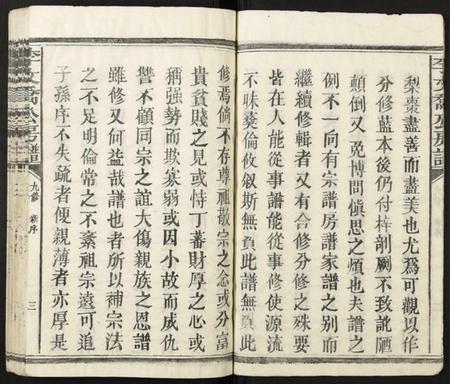 梨棗盡善而盡美也尤爲可觀以作
分修藍本後仍付梓剞劂不致訛
顛倒又免博問愼思之煩也夫譜之
例不一向有宗譜房譜家譜之别而
繼續修輯者又有合修分修之殊要
皆在人能從事譜能從事修使源流
不昧彝倫攸叙斯無負此譜無負此
修焉倘不存尊祖敬宗之念或分富
貴貧賤之見或恃丁蕃財厚之心或
稱强勢而欺寡弱或因小故而成仇
讐不顧同宗之誼大傷親族之恩譜
雖修又何益哉譜也者所以補宗法
之不足明倫常之不紊祖宗遠可追
子孫序不失疏者便親薄者亦厚是
李文
公房譜
九修
序
三